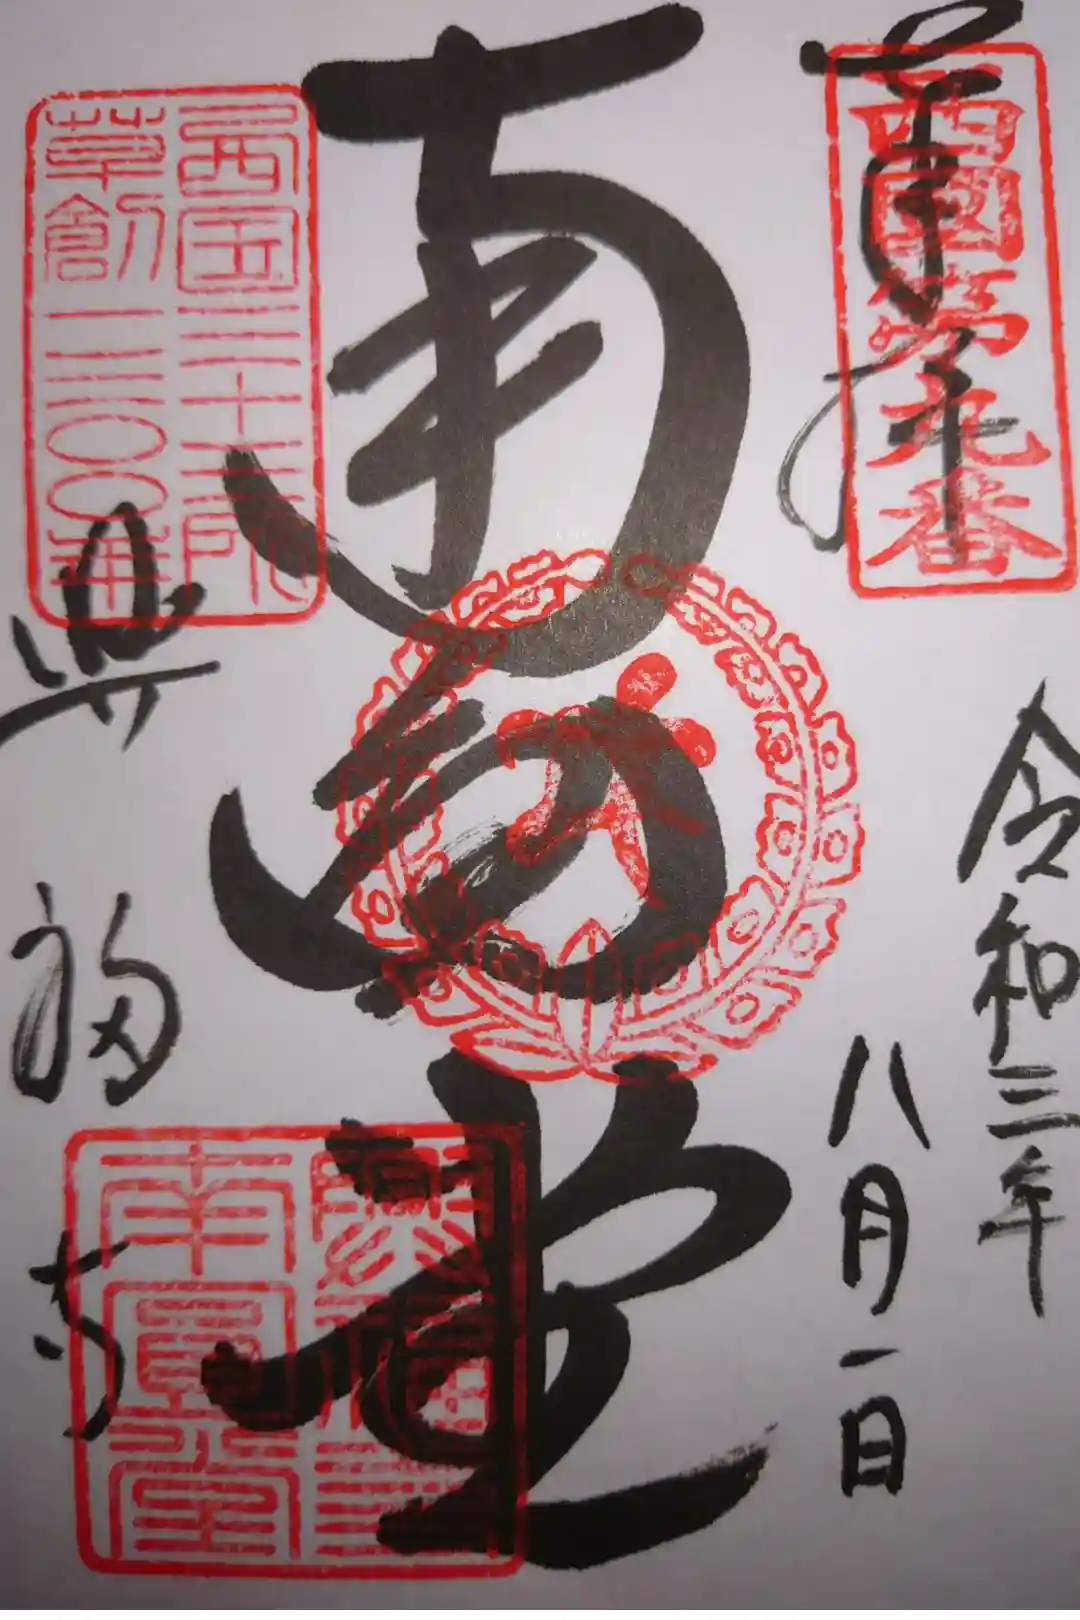 奉拝
西國第九番
令和三年
八月一日
南円堂
西国三十三所
草創一三〇〇年
興福寺
南圓堂